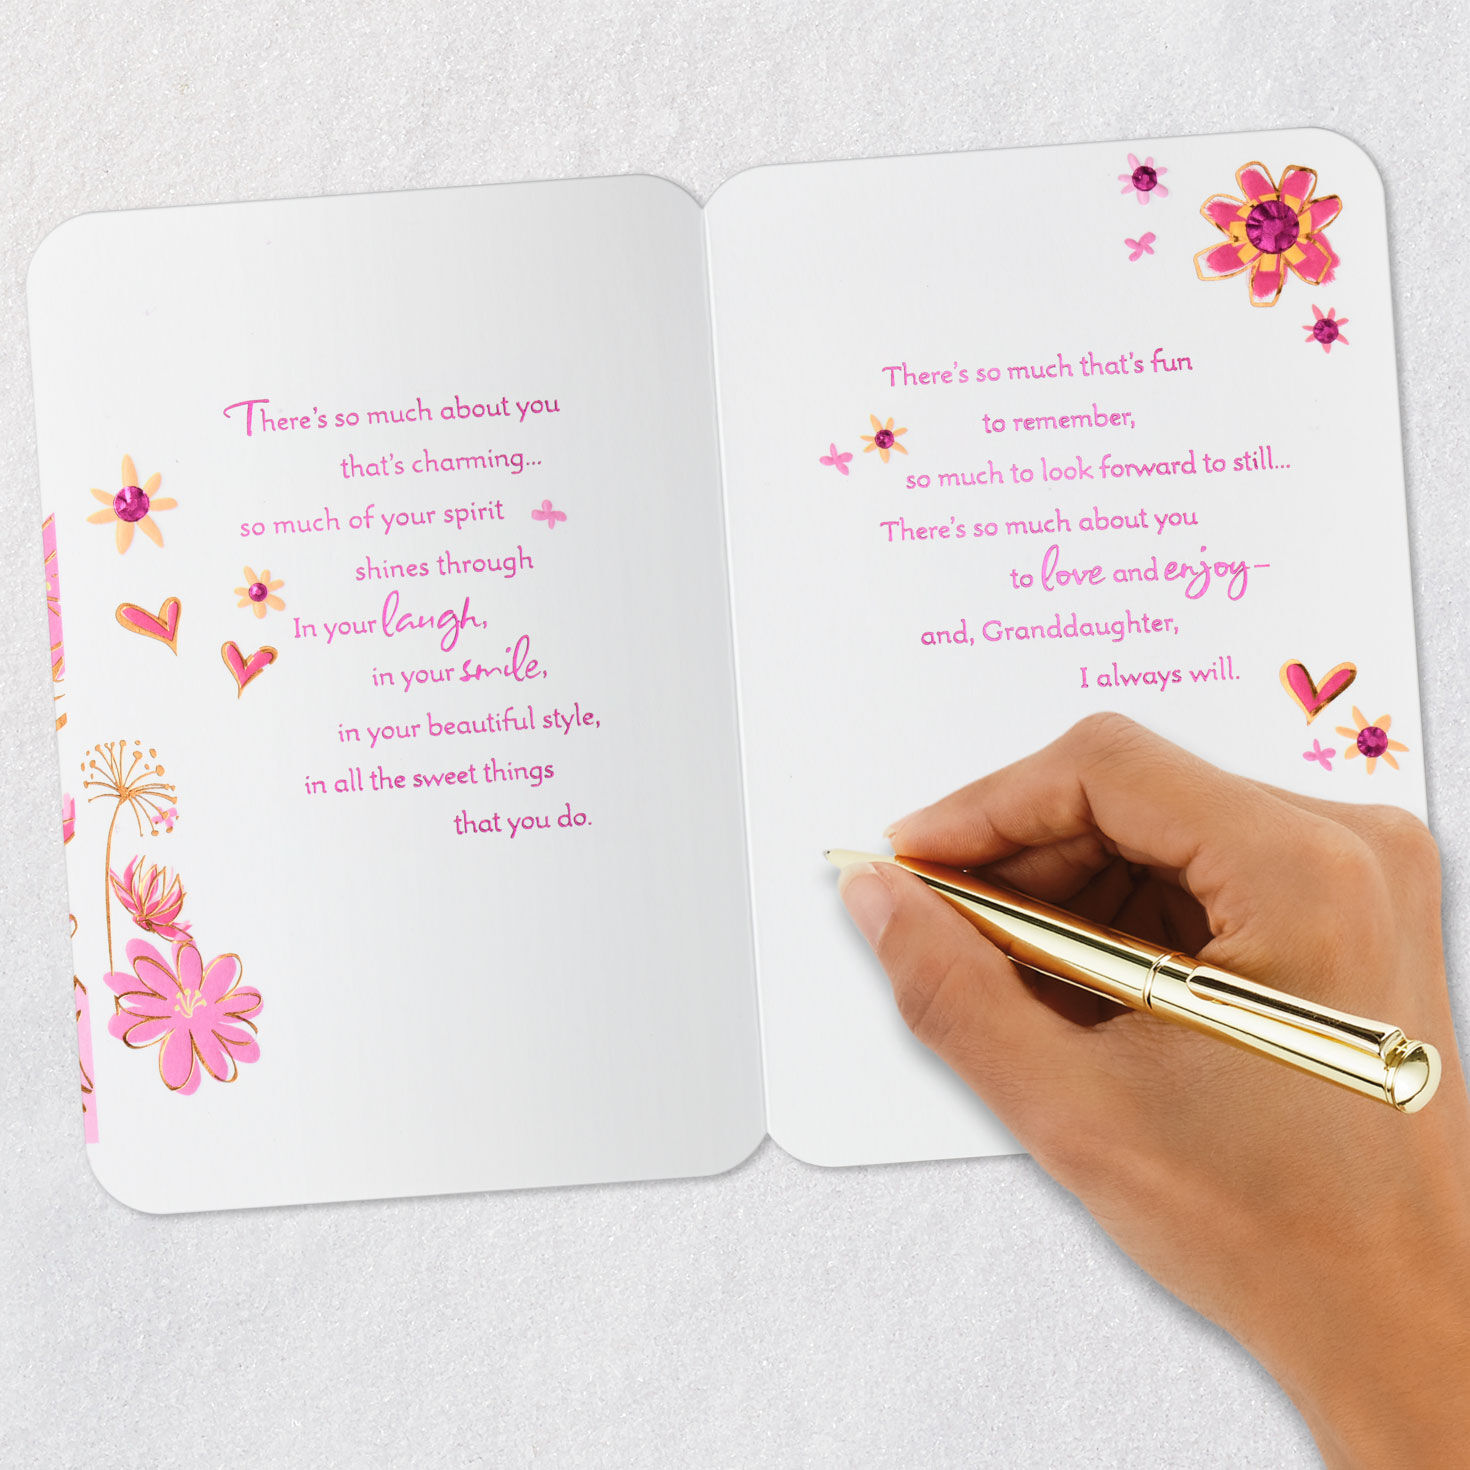 There's so much about you
that's charming...
so much of your spirit
shines through
In your laugh,
in your smile,
in your beautiful style,
in all the sweet things
that you do.
There's so much that's fun
to remember,
so much to look forward to still...
There's so much about you
to love and enjoy–
and, Granddaughter,
I always will.